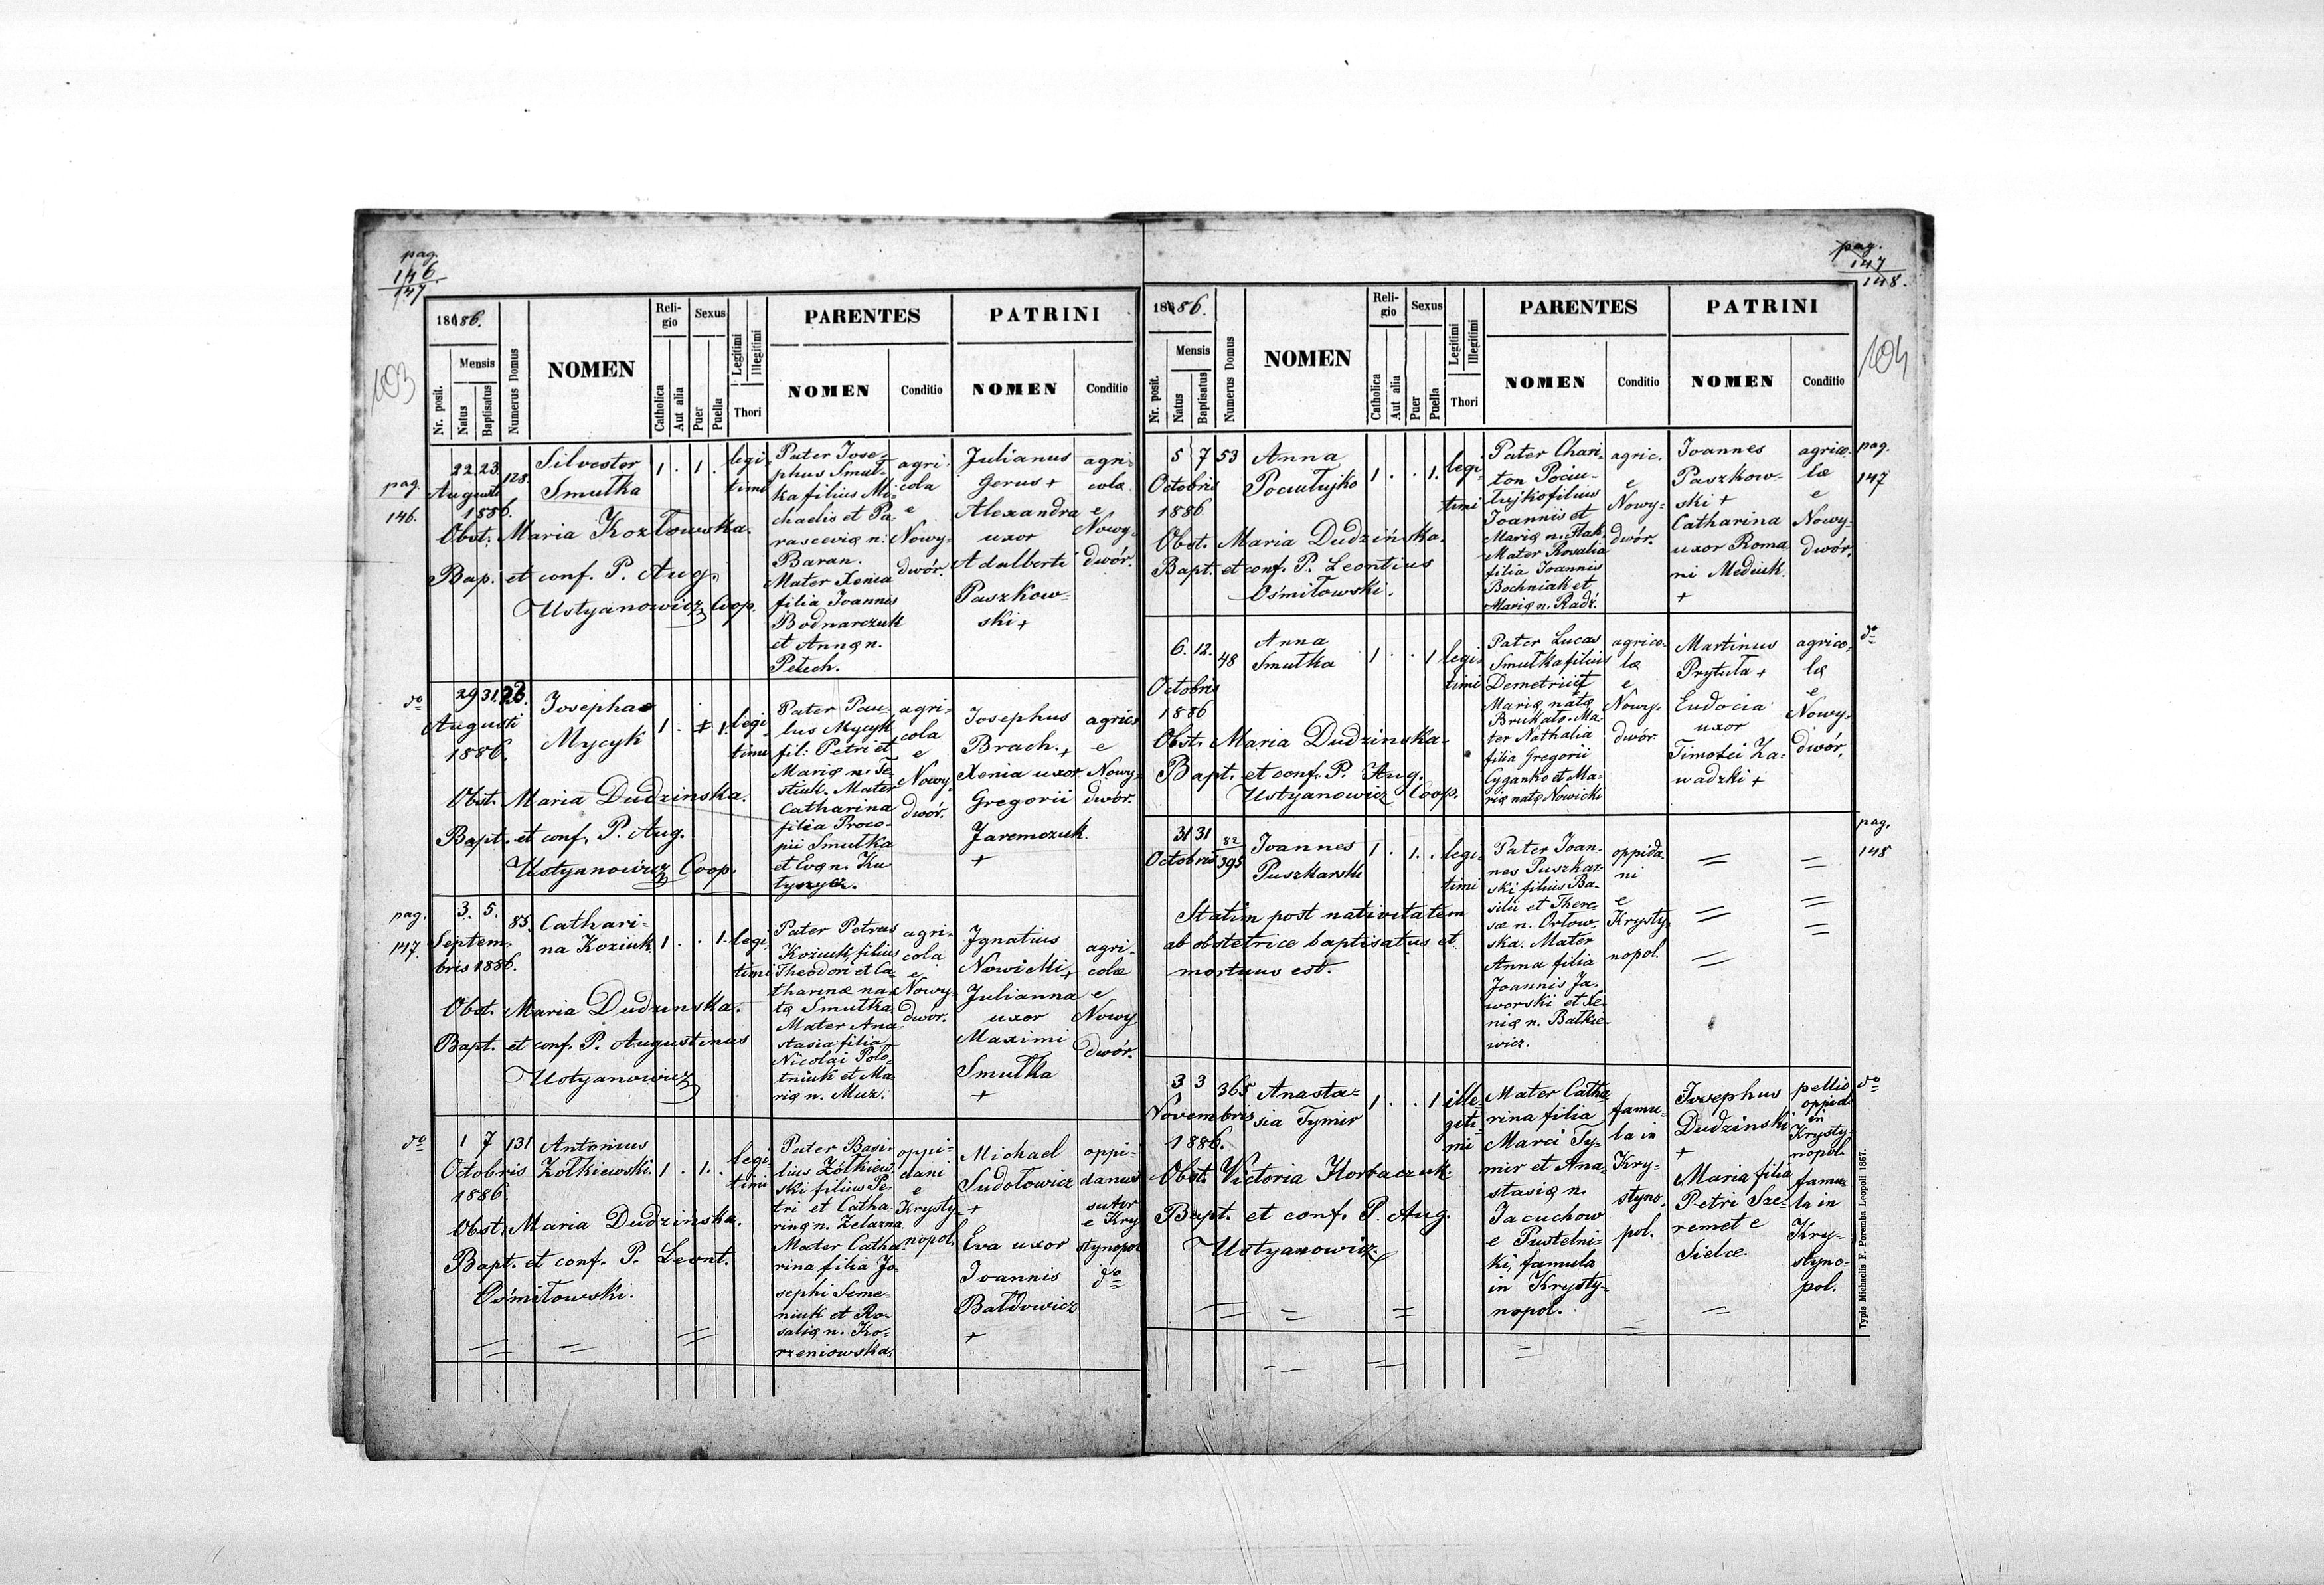 pag.
146
147
103
1886.
Nr. posit.
Mensis
Natus
Baptisatus
Numerus Domus
NOMEN
Religio
Catholica
Aut alia
Sexus
Puer
Puella
Legitimi
Illegitimi
Thori
PARENTES
NOMEN
Conditio
PATRINI
NOMEN
Conditio
pag.
146.
22 23
Augusti
1886.
128.
Silvester
Smutka
1 . 1 .
legi-
timi
Pater Jose-
phus Smut-
ka filius Mi-
chaelis et Pa-
rascevię n.
Baran.
Mater Xenia
filia Joannis
Bodnarczuk
et Annę n.
Petech.
agri-
cola
e
Nowy-
dwór.
Julianus
Gerus +
Alexandra
uxor
Adalberti
Paszkow-
ski +
agri-
colæ
e
Nowy-
dwór.
Obst. Maria Kozłowska.
Bap. et conf. P. Aug.
Ustyanowicz Coop.
do
29 31
Augusti
1886.
Josepha
Mycyk
1 . 1.
legi-
timi
Pater Pau-
lus Mycyk
fil: Petri et
Marię n. Te-
stiuk. Mater
Catharina
filia Proco-
pii Smutka
et Evę n. Ku-
agri-
cola
e
Nowy-
dwór.
Josephus
Brach. +
Xenia uxor
Gregorii
Jaremczuk.
+
e
Nowy-
dwór.
Obst. Maria Dudzinska.
Bapt. et conf. P. Aug.
Ustyanowicz Coop.
pag.
147.
3. 5.
Septem-
bris 1886.
85.
Cathari-
na Koziuk
1 . . 1.
legi-
timi
Pater Petrus
Koziuk filius
Theodori et Ca-
tharinæ na-
tę Smutka
Mater Ana-
stasia filia
Nicolai Polo-
tniuk et Ma-
rię n. Muz.
agri-
cola
e
Nowy-
dwór.
Ignatius
Nowicki +
Julianna
uxor
Maximi
Smutka
+
agri-
colæ
e
Nowy
dwór.
Obst. Maria Dudzinska.
Bapt. et conf. P. Augustinus
Ustyanowicz
do
1 7
Octobris
1886.
131
Antonius
Żołkiewski.
1 . 1. .
legi-
timi
Pater Basi-
lius Żołkiew-
ski filius Pe-
tri et Catha-
rinę n. Zelazna.
Mater Catha-
rina filia Jo-
sephi Seme-
niuk et Ro-
salię n. Ko-
rzeniowska.
oppi-
dani
e
Krysty-
nopol.
Michael
Sudołowicz
+
Eva uxor
Joannis
Bałdowicz
+
oppi-
danus
sutor
e Kry
stynopol
do
Obst. Maria Dudzińska.
Bapt. et conf. P. Leont.
Ośmiłowski.
pag.
147
148.
104
1886.
Nr. posit.
Mensis
Natus
Baptisatus
Numerus Domus
NOMEN
Religio
Catholica
Aut alia
Sexus
Puer
Puella
Legitimi
Illegitimi
Thori
PARENTES
NOMEN
Conditio
PATRINI
NOMEN
Conditio
5 7
Octobris
1886
53
Anna
Pociułujko
1 . . 1.
legi-
timi
Pater Chari-
ton Pociu-
łujko filius
Joannis et
Marię n. Hak.
Mater Rosalia
filia Joannis
Bochniak et
Marię n. Radź.
agric.
e
Nowy-
dwór.
Joannes
Paszkow-
ski +
Catharina
uxor Roma
ni Mediuk.
+
agrico-
læ
e
Nowy-
dwór.
pag.
147
Obst. Maria Dudzińska.
Bapt. et conf. P. Leontius
Ośmiłowski.
6. 12.
Octobris
1886
48
Anna
Smutka
1 . . 1
legi-
timi
Pater Lucas
Smutka filius
Demetrii et
Marię natę
Brukało. Ma-
ter Nathalia
filia Gregorii
Cyganko et Ma-
rię natę Nowicki
agrico-
læ
e
Nowy-
dwór
Martinus
Prytuła +
Eudocia
uxor
Timotei Za-
wadzki +
agrico-
lę
e
Nowy-
dwór.
do
Obst. Maria Dudzinska.
Bapt. et conf. P. Aug.
Ustyanowicz Coop.
31 31
Octobris
82
395
Joannes
Puszkarski
1 . 1. .
legi-
timi
Pater Joan-
nes Puszkar-
ski filius Ba-
silii et There-
sæ n. Orłow-
ska. Mater
Anna filia
Joannis Ja-
worski et Xe-
nię n. Batkie-
wicz.
oppida-
ni
e
Krysty-
nopol.
pag.
148
Statim post nativitatem
ab obstetrice baptisatus et
mortuus est.
3 3
Novembris
1886.
365
Anasta-
sia Tymir
1 . . 1
ille-
giti-
mi
Mater Catha
rina filia
Marci Ty-
mir et Ana-
stasię n.
Jacuchow
e Pustelni-
ki, famula
in Krysty-
nopol.
famu-
la in
Kry-
styno-
pol.
Josephus
Dudzinski
+
Maria filia
Petri Sze-
remet e
Sielce.
pellio
oppid.
in
Krysty-
nopol.
famu-
la in
Kry-
styno-
pol.
do
Obst. Victoria Horbaczuk.
Bapt. et conf. P. Aug.
Ustyanowicz.
Typis Michaelis F. Poremba Leopoli 1867.